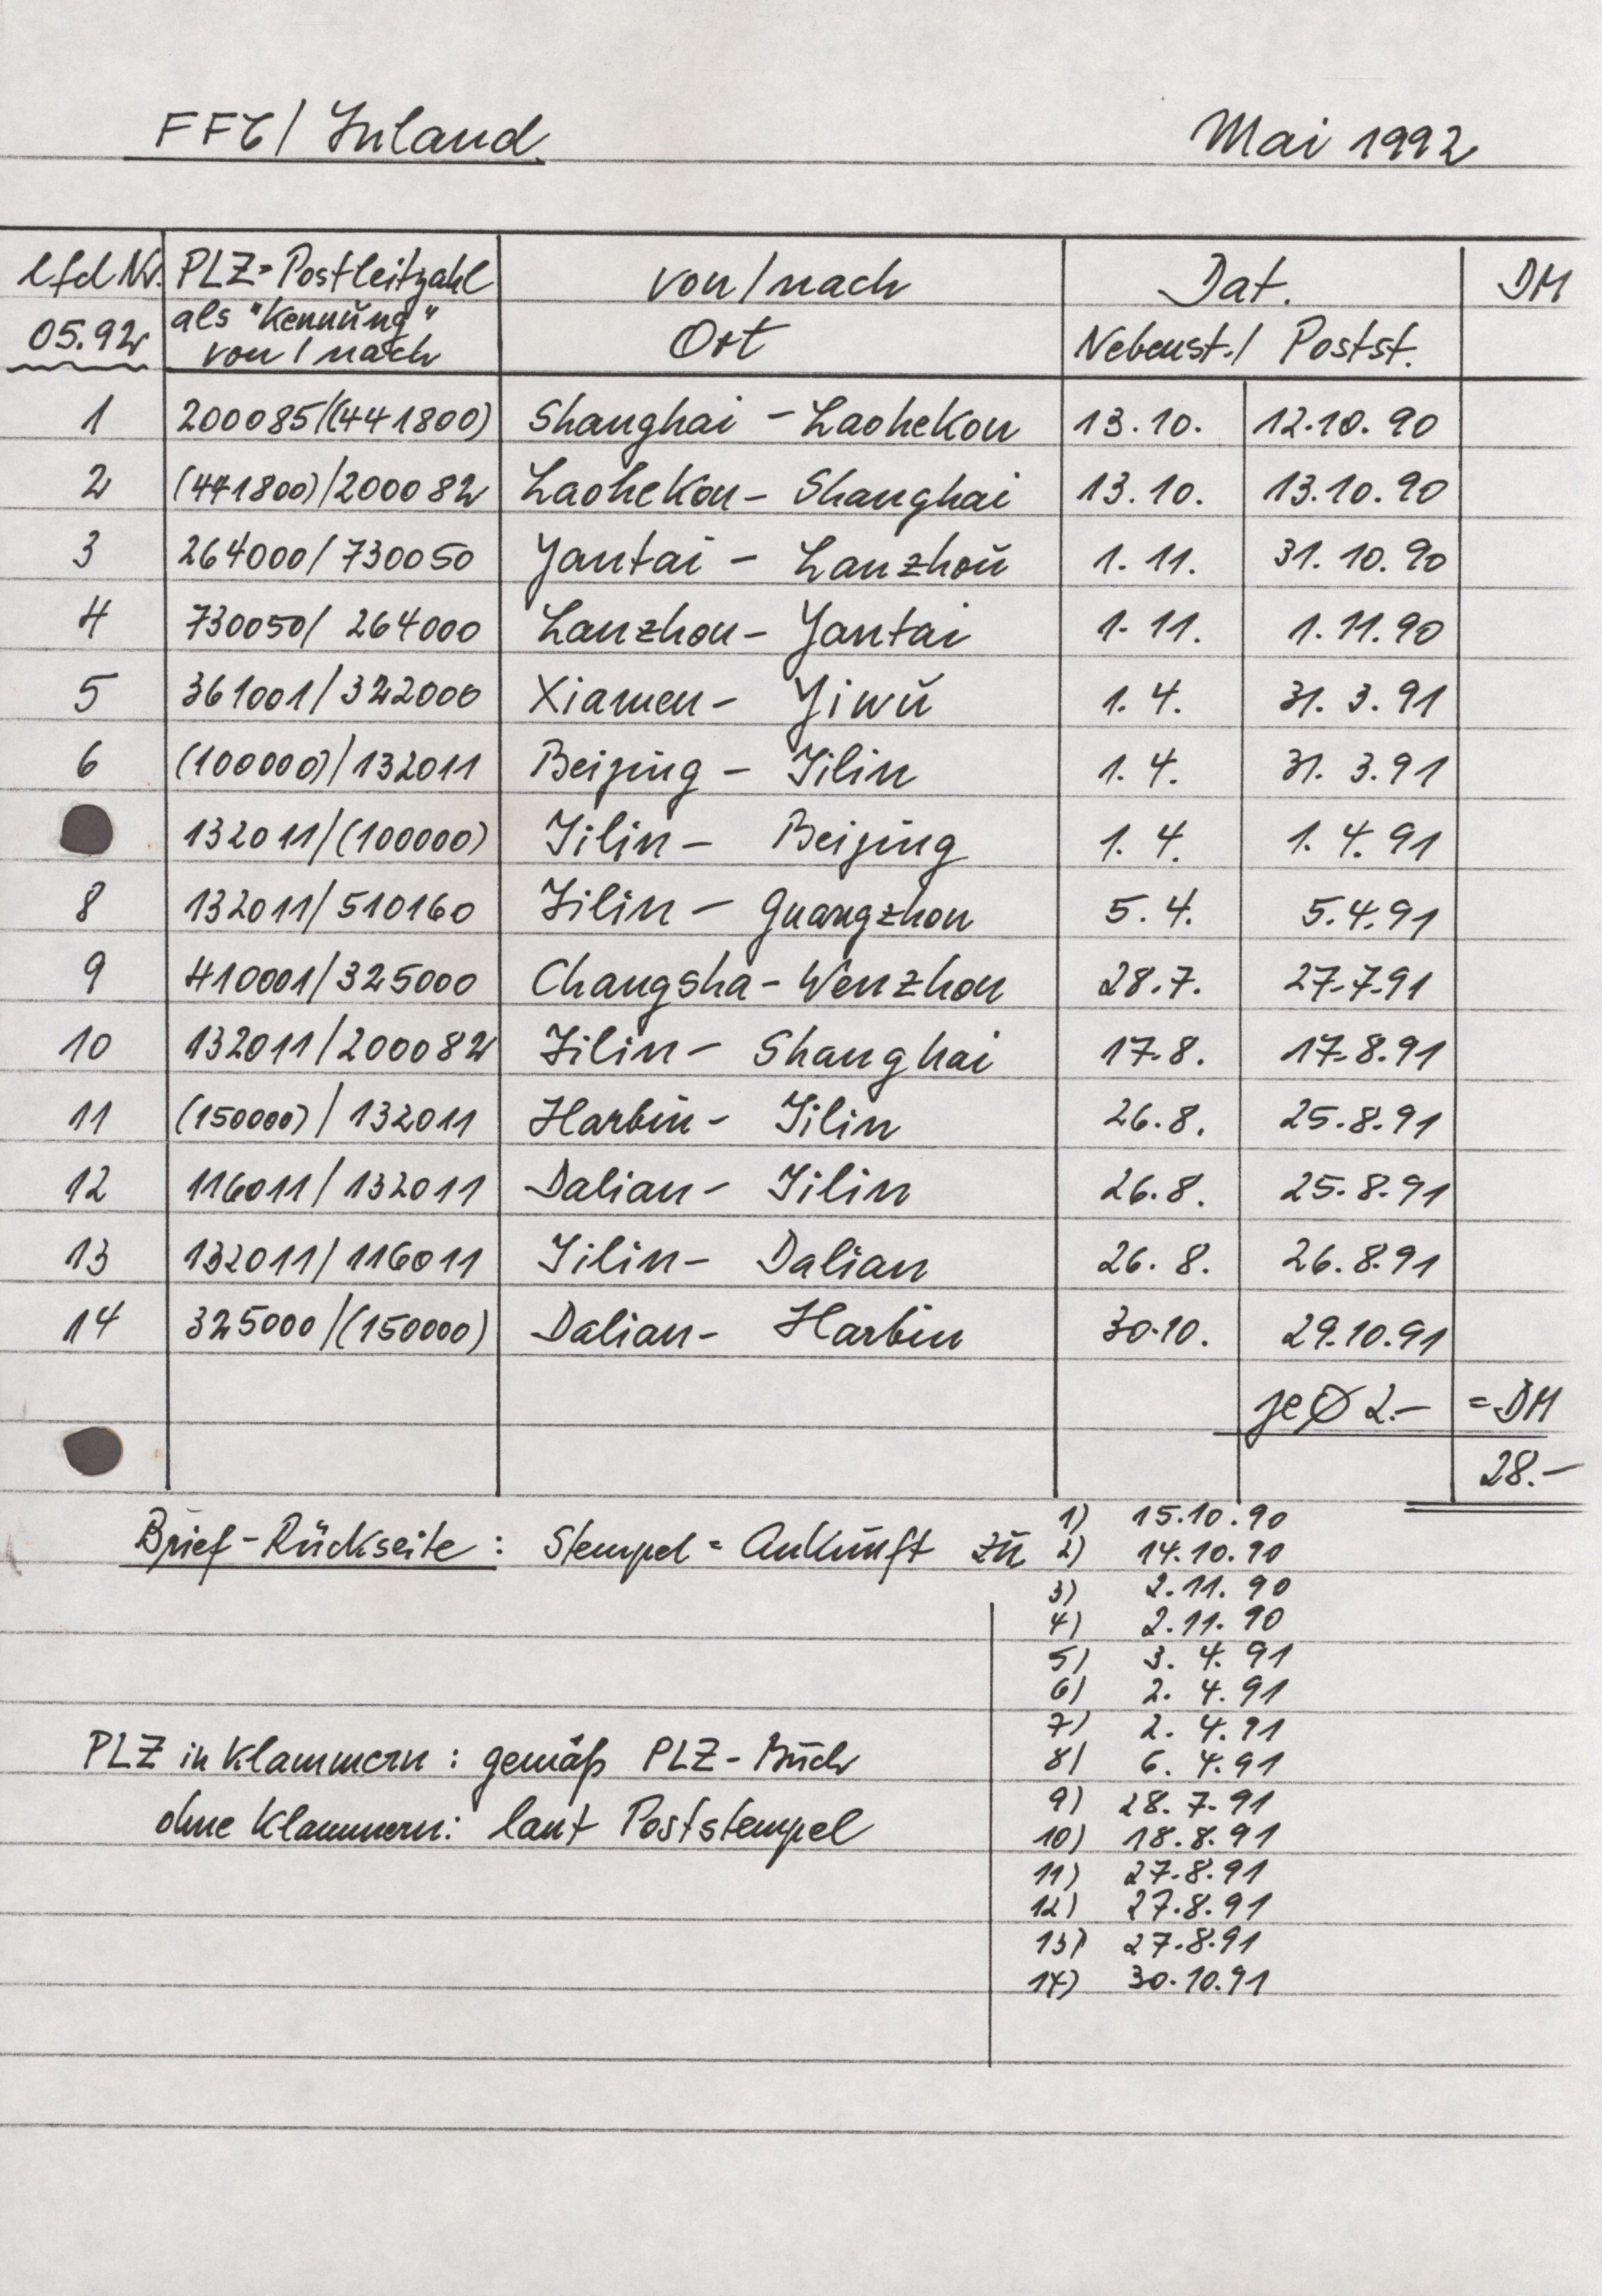 FFC/ Inland.
Mai 1992
lfd Nr. PLZ=Postleitzahl von/nach Dat. DM
05.92 als "Kennung" Ort Nebenst./ Postst.
von/nach
1 200085/(441800) Shanghai - Laohekou 13.10. 12.10.90
2 (441800)/200082 Laohekou - Shanghai 13.10. 13.10.90
3 264000/730050 Yantai - Lanzhou 1.11. 31.10.90
4 730050/264000 Lanzhou - Yantai 1.11. 1.11.90
5 361001/322000 Xiamen - Yiwu 1.4. 31.3.91
6 (100000)/132011 Beijing - Jilin 1.4. 31.3.91
132011/(100000) Jilin - Beijing 1.4. 1.4.91
8 132011/510160 Jilin - Guangzhou 5.4. 5.4.91
9 410001/325000 Changsha - Wenzhou 28.7. 27.7.91
10 132011/200082 Jilin - Shanghai 17.8. 17.8.91
11 (150000)/132011 Harbin - Jilin 26.8. 25.8.91
12 116011/132011 Dalian - Jilin 26.8. 25.8.91
13 132011/116011 Jilin - Dalian 26.8. 26.8.91
14 325000/(150000) Dalian - Harbin 30.10. 29.10.91
je Ø 2.- = DM
28.-
Brief-Rückseite: Stempel = Ankunft zu
1) 15.10.90
2) 14.10.90
3) 2.11.90
4) 2.11.90
5) 3.4.91
6) 2.4.91
7) 2.4.91
8) 6.4.91
9) 28.7.91
10) 18.8.91
11) 27.8.91
12) 27.8.91
13) 27.8.91
14) 30.10.91
PLZ in Klammern: gemäß PLZ-Buch
ohne Klammern: laut Poststempel